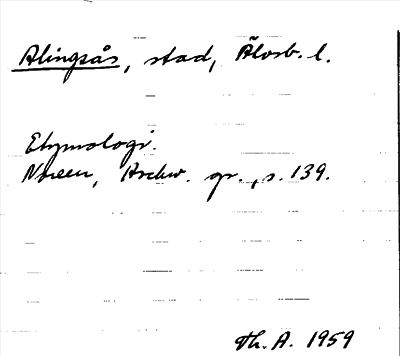 Alingsås, stad, Älvsb. l.
Etymologi.
Noreen, Aschw. gr., s. 139.
Th. A. 1959